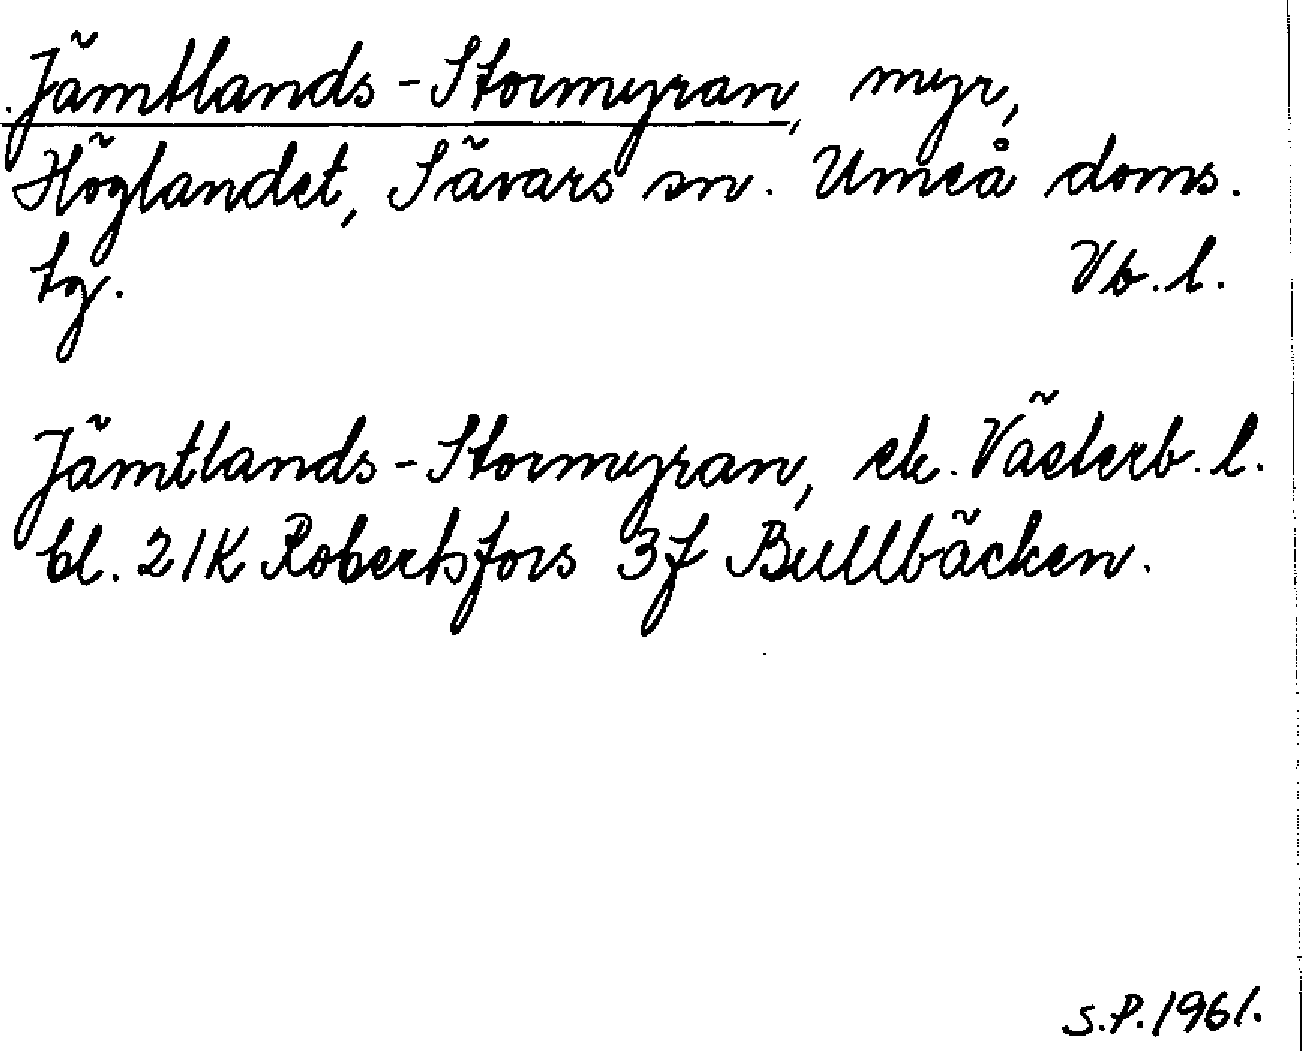 Jämtlands-Stormyran, myr,
Höglandet, Sävars sn. Umeå doms.
tg. Vb.l.
Jämtlands-Stormyran, ek. Västerb.l.
bl. 21K Robertsfors 3f Bullbäcken.
S.P.1961.